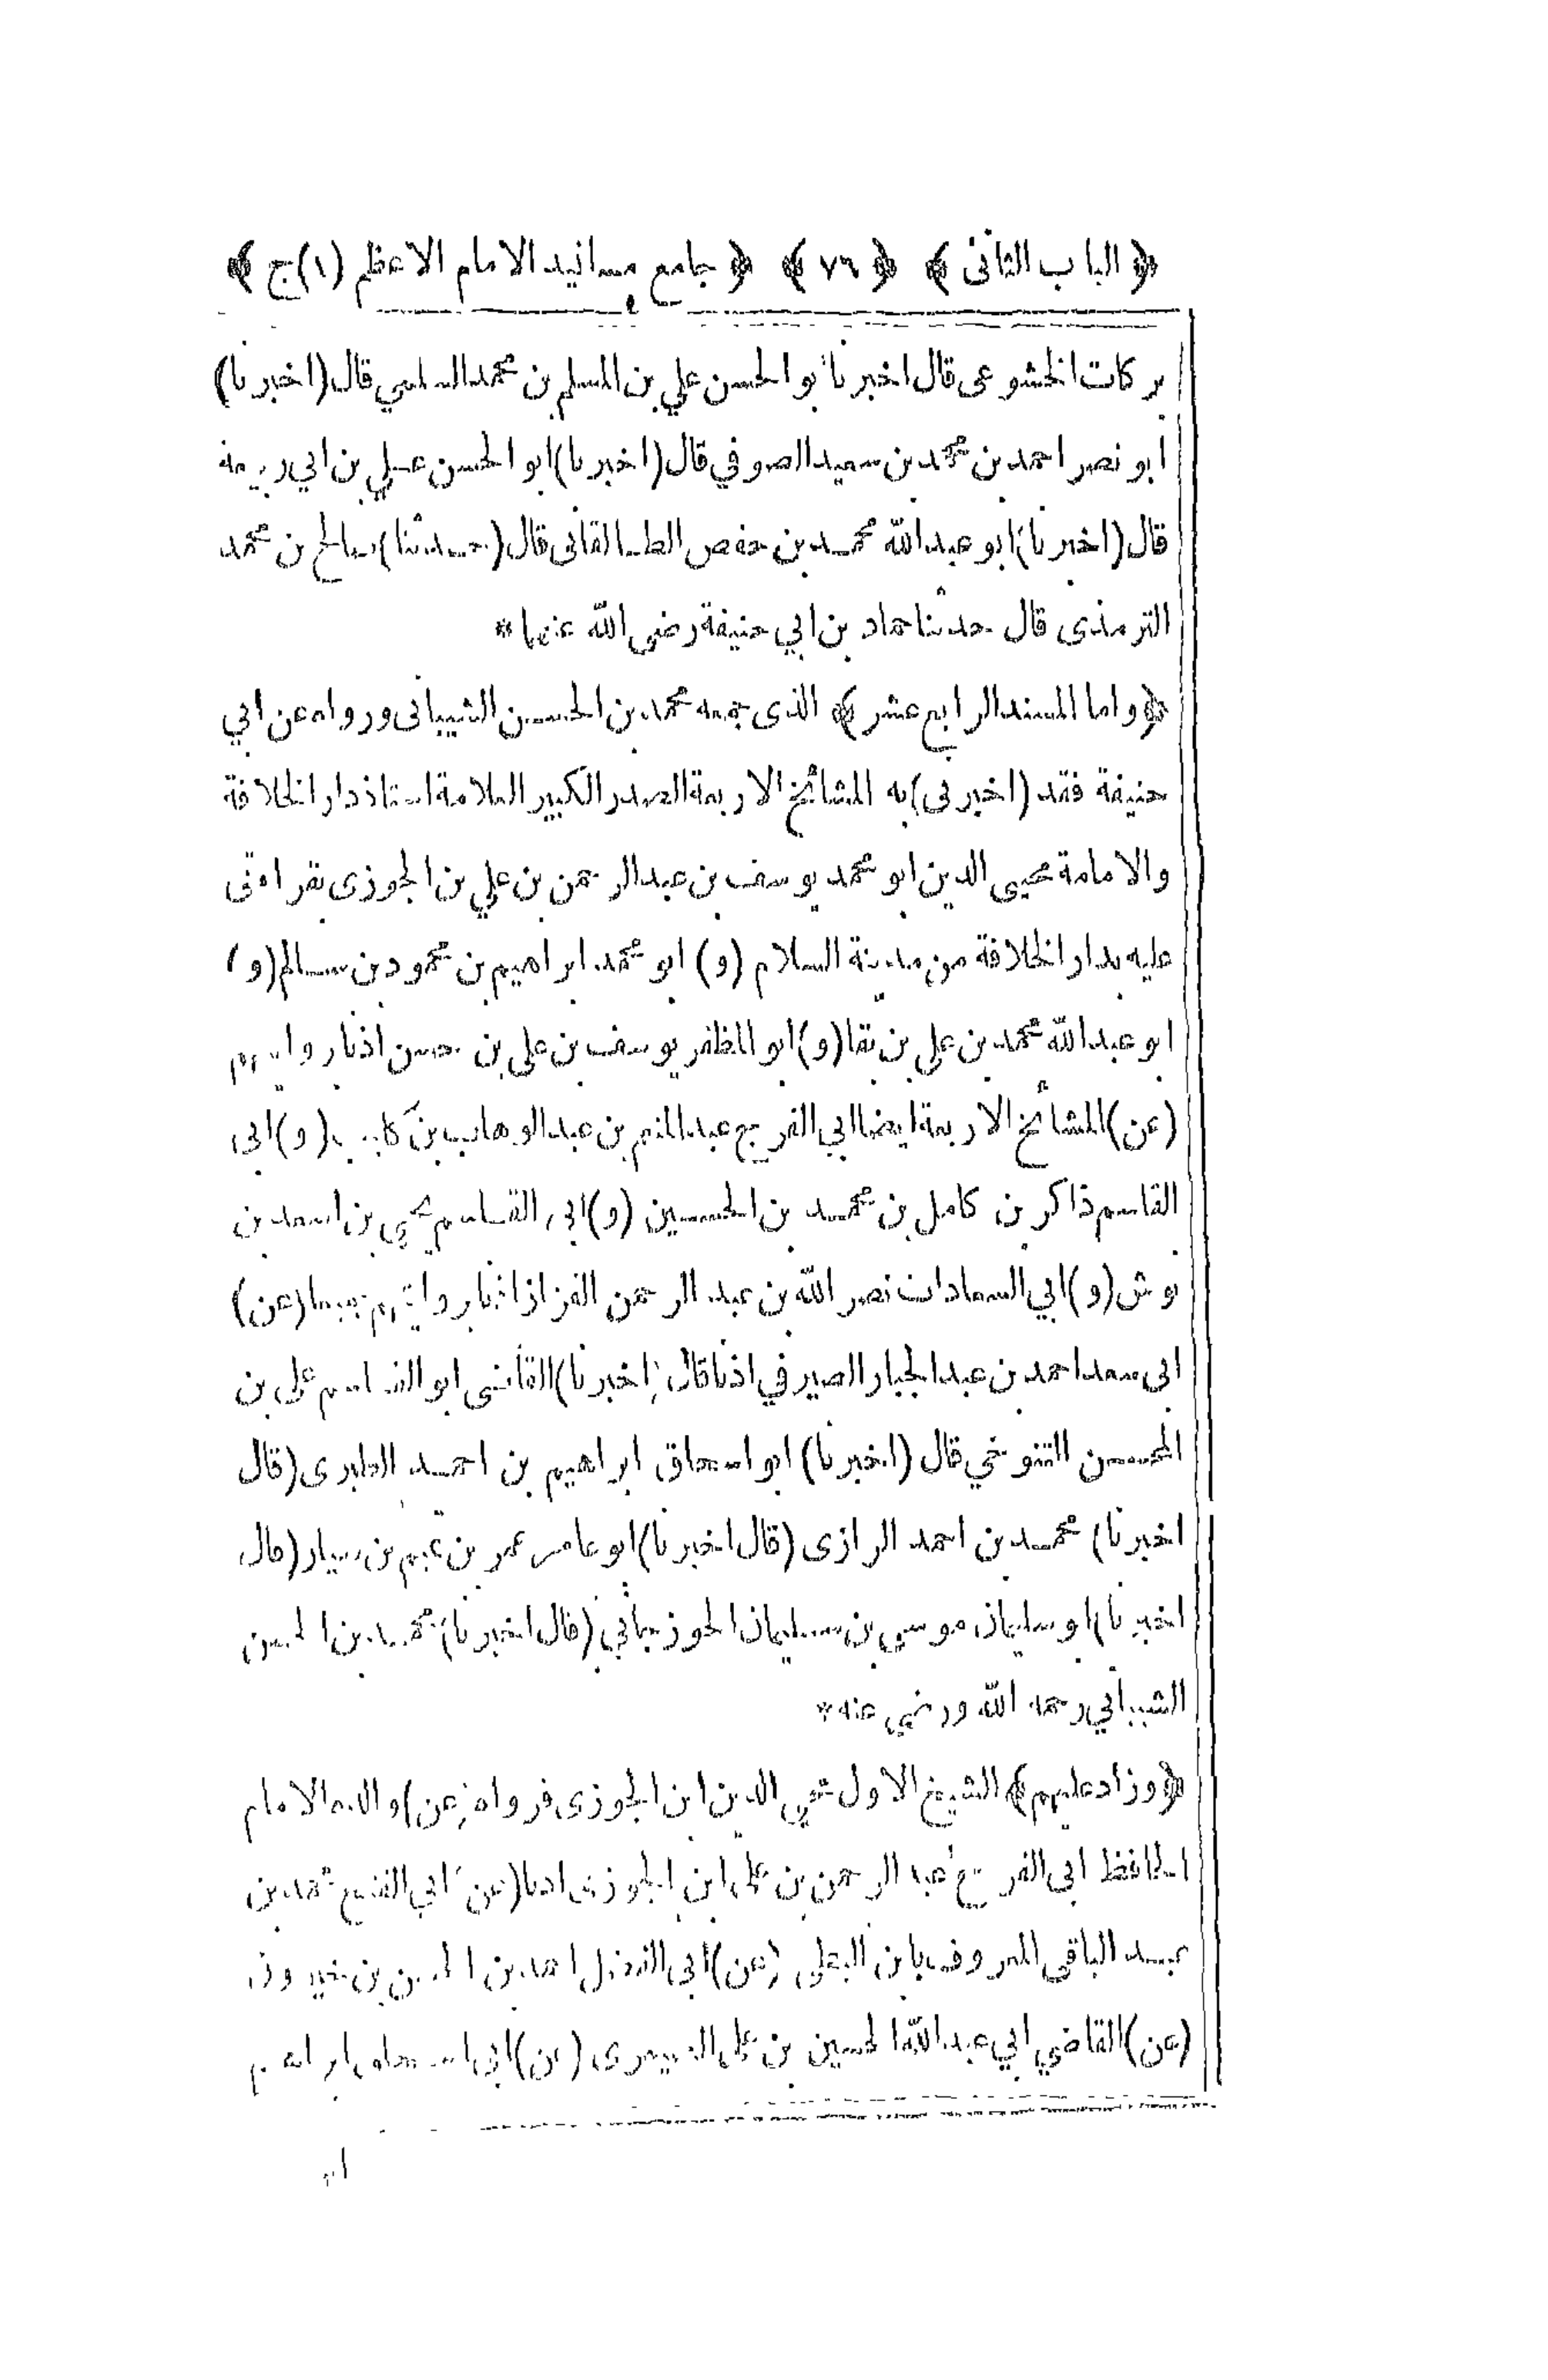 ﴿ الباب الثانى ﴾ ﴿ ٧٦ ﴾ ﴿ جامع مسانيد الامام الاعظم (١) ج ﴾
بركات الخشوعى قال اخبرنا ابو الحسن علي بن المسلم بن محمد السلمي قال (اخبرنا)
ابو نصر احمد بن محمد بن سعيد الصوفي قال (اخبرنا) ابو الحسن علي بن ابي ربيعة
قال (اخبرنا) ابو عبد الله محمد بن حفص الطالقانى قال (حدثنا) صالح بن محمد
الترمذى قال حدثنا حماد بن ابي حنيفة رضى الله عنهما *
﴿ واما المسند الرابع عشر ﴾ الذى جمعه محمد بن الحسن الشيبانى ورواه عن ابي
حنيفة فقد (اخبرنى) به المشائخ الاربعة الصدر الكبير العلامة استاذ دار الخلافة
والامامة محيى الدين ابو محمد يوسف بن عبد الرحمن بن علي بن الجوزى بقراءتى
عليه بدار الخلافة من مدينة السلام (و) ابو محمد ابراهيم بن محمود بن سالم (و)
ابو عبد الله محمد بن علي بن بقا (و) ابو المظفر يوسف بن علي بن حسن اذنا بروايتهم
(عن) المشائخ الاربعة ايضا ابي الفرج عبد المنعم بن عبد الوهاب بن كليب (و) ابى
القاسم ذاكر بن كامل بن محمد بن الحسين (و) ابى القاسم يحيى بن اسعد بن
نوش (و) ابي السعادات نصر الله بن عبد الرحمن القزاز اذنا بروايتهم جميعا (عن)
ابى سعد احمد بن عبد الجبار الصيرفي اذنا قال (اخبرنا) القاضى ابو القاسم على بن
المحسن التنوخي قال (اخبرنا) ابو اسحاق ابراهيم بن احمد الطبرى (قال
اخبرنا) محمد بن احمد الرازى (قال اخبرنا) ابو عامر عمر بن تميم بن سيار (قال
اخبرنا) ابو سليمان موسى بن سليمان الجوزجانى (قال اخبرنا) محمد بن الحسن
الشيبانى رحمه الله ورضي عنه *
﴿ وزاد عليهم ﴾ الشيخ الاول محيي الدين ابن الجوزى فرواه (عن) والده الامام
الحافظ ابى الفرج عبد الرحمن بن على ابن الجوزى اذنا (عن) ابي الفتح محمد بن
عبد الباقى المعروف بابن البطى (عن) ابى الفضل احمد بن الحسن بن خيرون
(عن) القاضي ابي عبد الله الحسين بن على الصيمرى (عن) ابى اسحاق ابراهيم